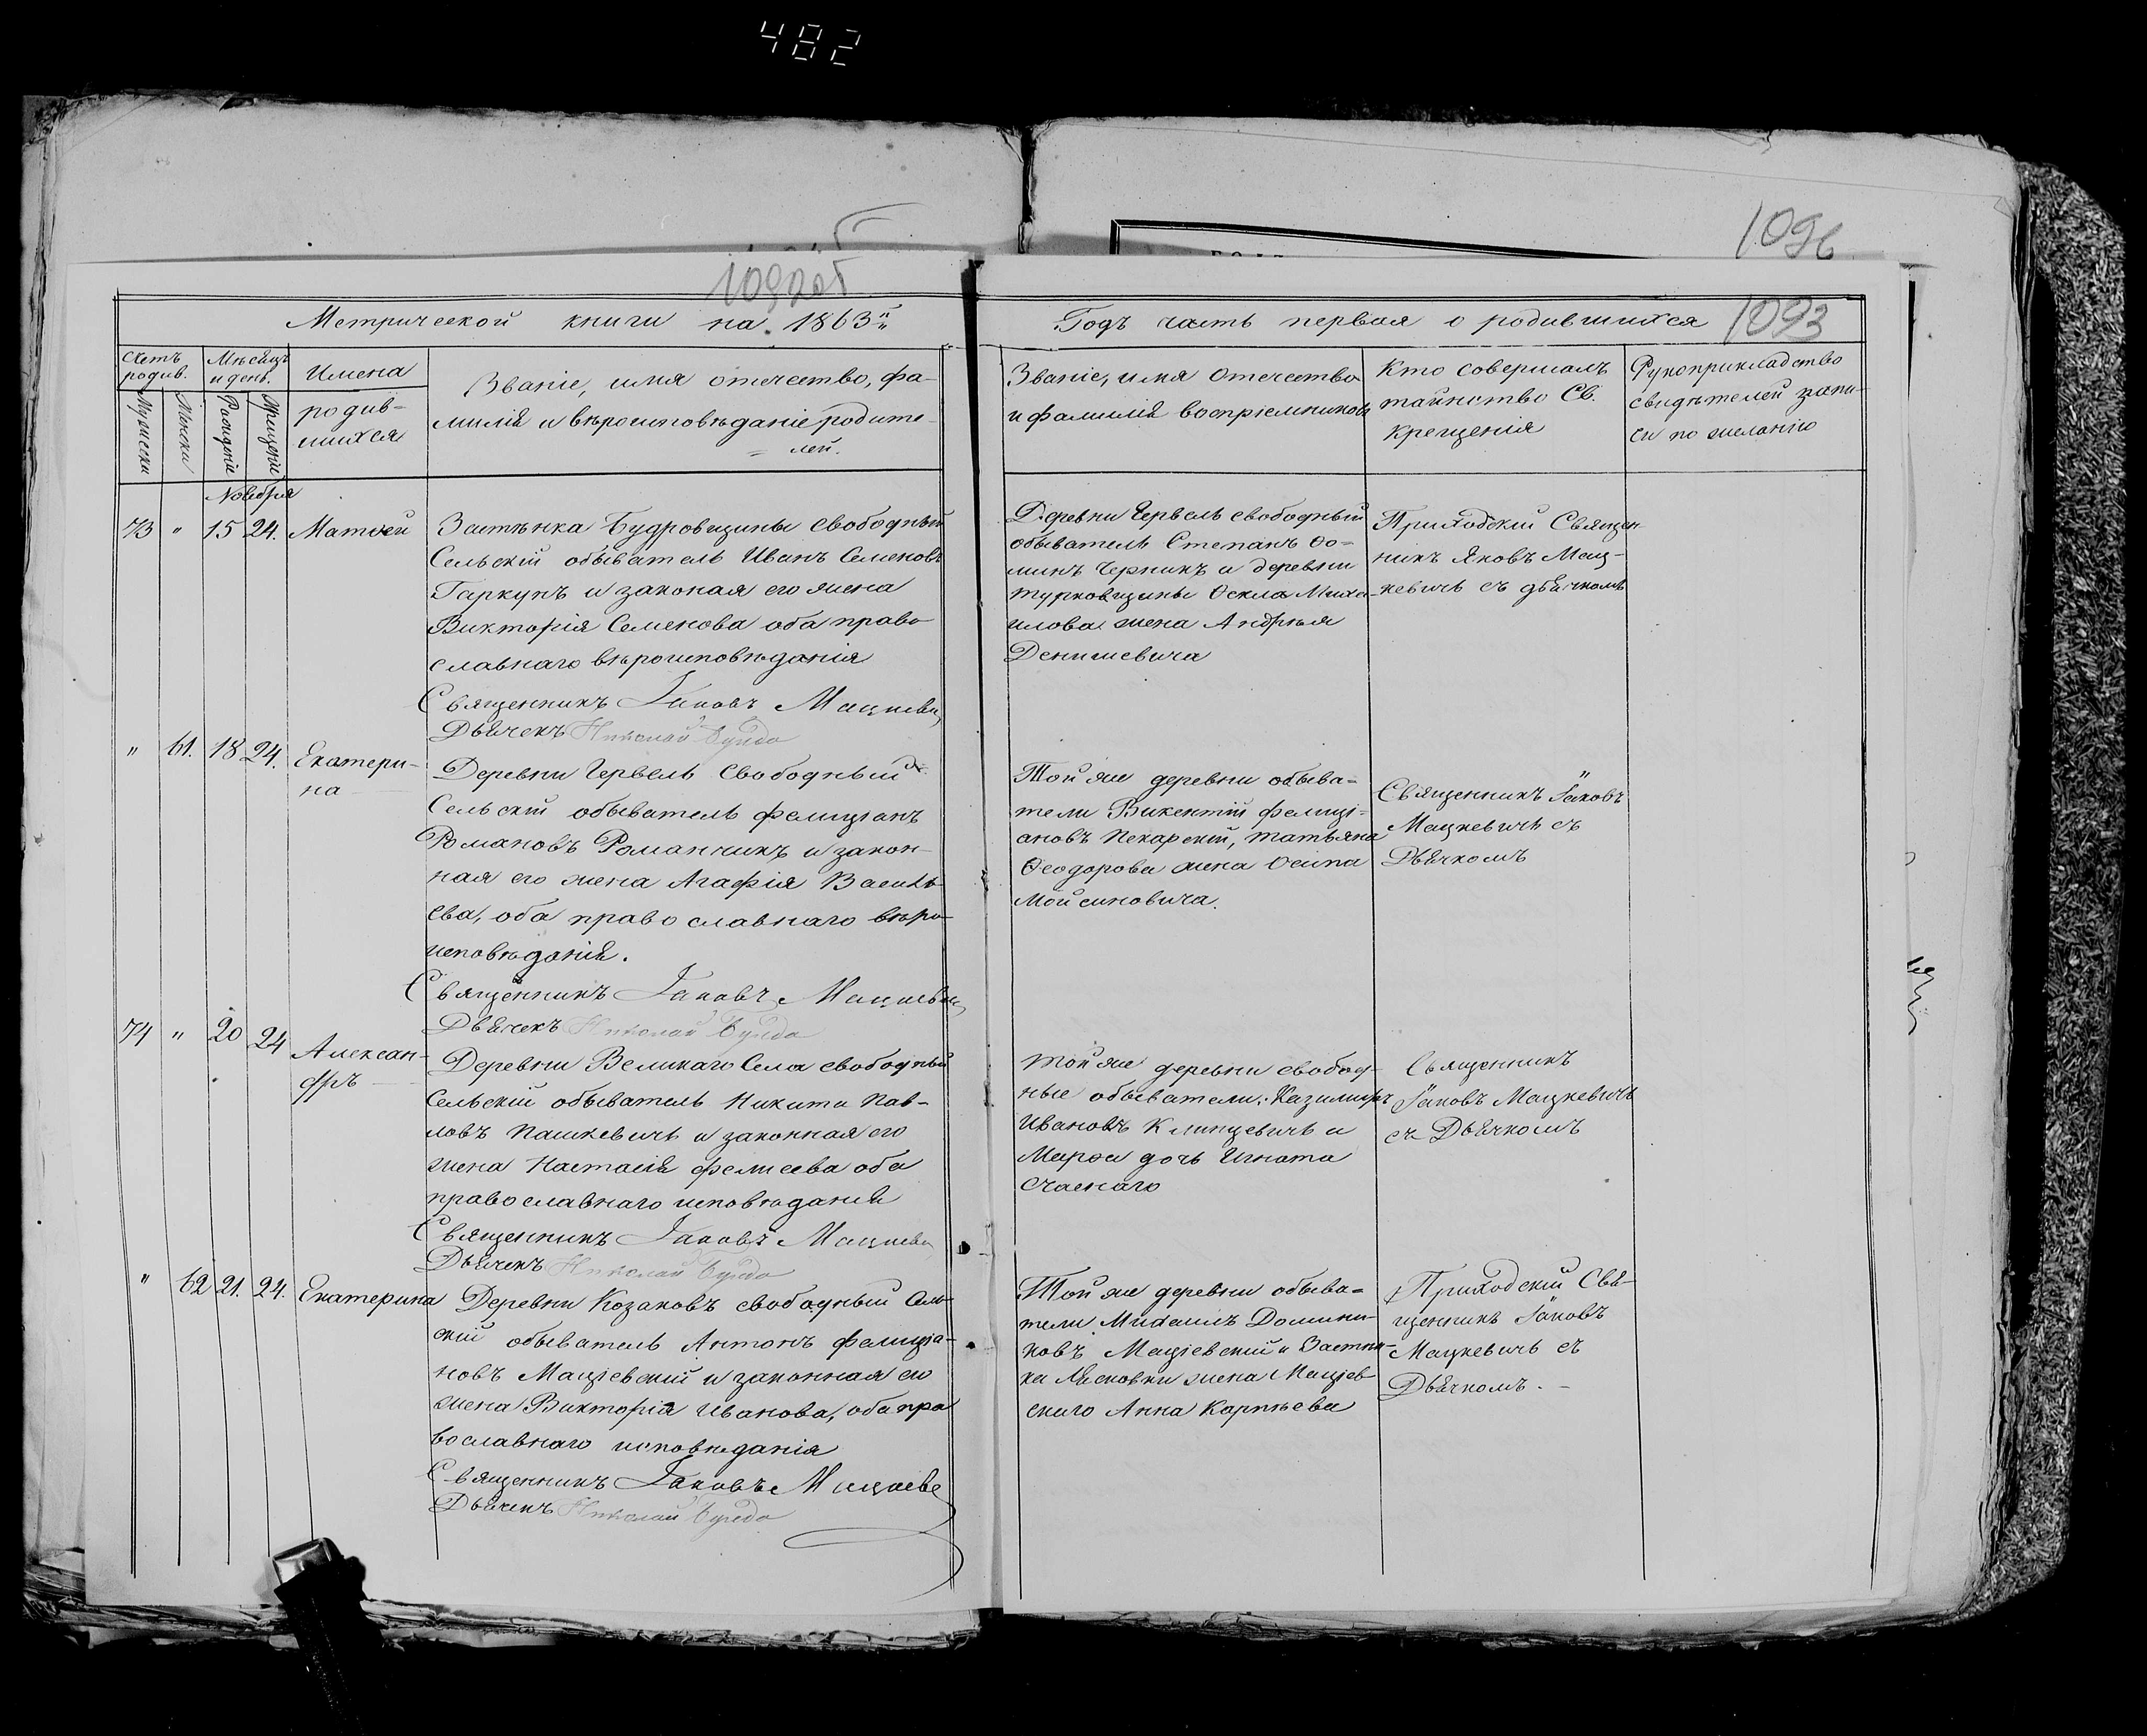 482
1096
1092об
1093
Метрической книги на 1863й
Годъ часть первая о родившихся
Счетъ родив.
Мужески
Женски
Мѣсяцъ и день.
Рожденія
Крещенія
Имена
родив-
шихся
Званіе, имя отечество, фа-
милія и вѣроисповѣданіе родите-
лей.
Званіе, имя отечество
и фамилія воспріемниковъ
Кто совершалъ
таинство Св.
Крещенія
Рукоприкладство
свидѣтелей запи-
си по желанію
Ноября
73 " 15 24. Матвей
Застѣнка Будровщины свободный
Сельскій обыватель Иванъ Семеновъ
Гаркунъ и законая его жена
Викторія Семенова оба право
славнаго вѣроисповѣданія
Священникъ Іаковъ Мацкевич
Дьячекъ Николай
Деревни Червель свободный
обыватель Степанъ Ѳо-
минъ Черникъ и деревни
Турковщины Ѳекла Миха-
илова жена Андрея
Денишевича
Приходскій Священ-
никъ Яковъ Мац-
кевичъ съ дьячкомъ
" 61. 18 24. Екатери-
на
Деревни Червель Свободный
Сельскій обыватель Фелиціанъ
Романовъ Романчикъ и закон-
ная его жена Агафія Василь-
ева, оба православнаго вѣро-
исповѣданія.
Священникъ Іаковъ Мацкевич
Дьячекъ Николай
Той же деревни обыва-
тели Викентій Фелиці-
ановъ Пекарскій, Татьяна
Ѳеодорова жена Осипа
Мойсиновича.
Священникъ Іаковъ
Мацкевичъ съ
Дьячкомъ
74 " 20 24 Алексан-
дръ
Деревни Великаго Села свободный
Сельскій обыватель Никита Пав-
ловъ Пашкевичъ и законная его
жена Настасія Фелисева оба
православнаго исповѣданія
Священникъ Іаковъ Мацкевич
Дьячекъ Николай
Той же деревни свобод-
ные обыватели: Казимиръ
Ивановъ Климцевичъ и
Марѳа дочь Игната
Счаснаго
Священникъ
Іаковъ Мацкевичъ
съ Дьячкомъ
" 62 21. 24. Екатерина
Деревни Козаковъ свободный Сель-
скій обыватель Антонъ Фелиціа-
новъ Маціевскій и законная его
жена Викторія Иванова, оба пра
вославнаго исповѣданія
Священникъ Іаковъ Мацкеве
Дьячекъ Николай
Той же деревни обыва-
тели Михаилъ Домини-
ковъ Маціевскій и Застѣн-
ки жена Маціев
скаго Анна Карпѣева
Приходскій Свя-
щенникъ Іаковъ
Мацкевичъ съ
Дьячкомъ.